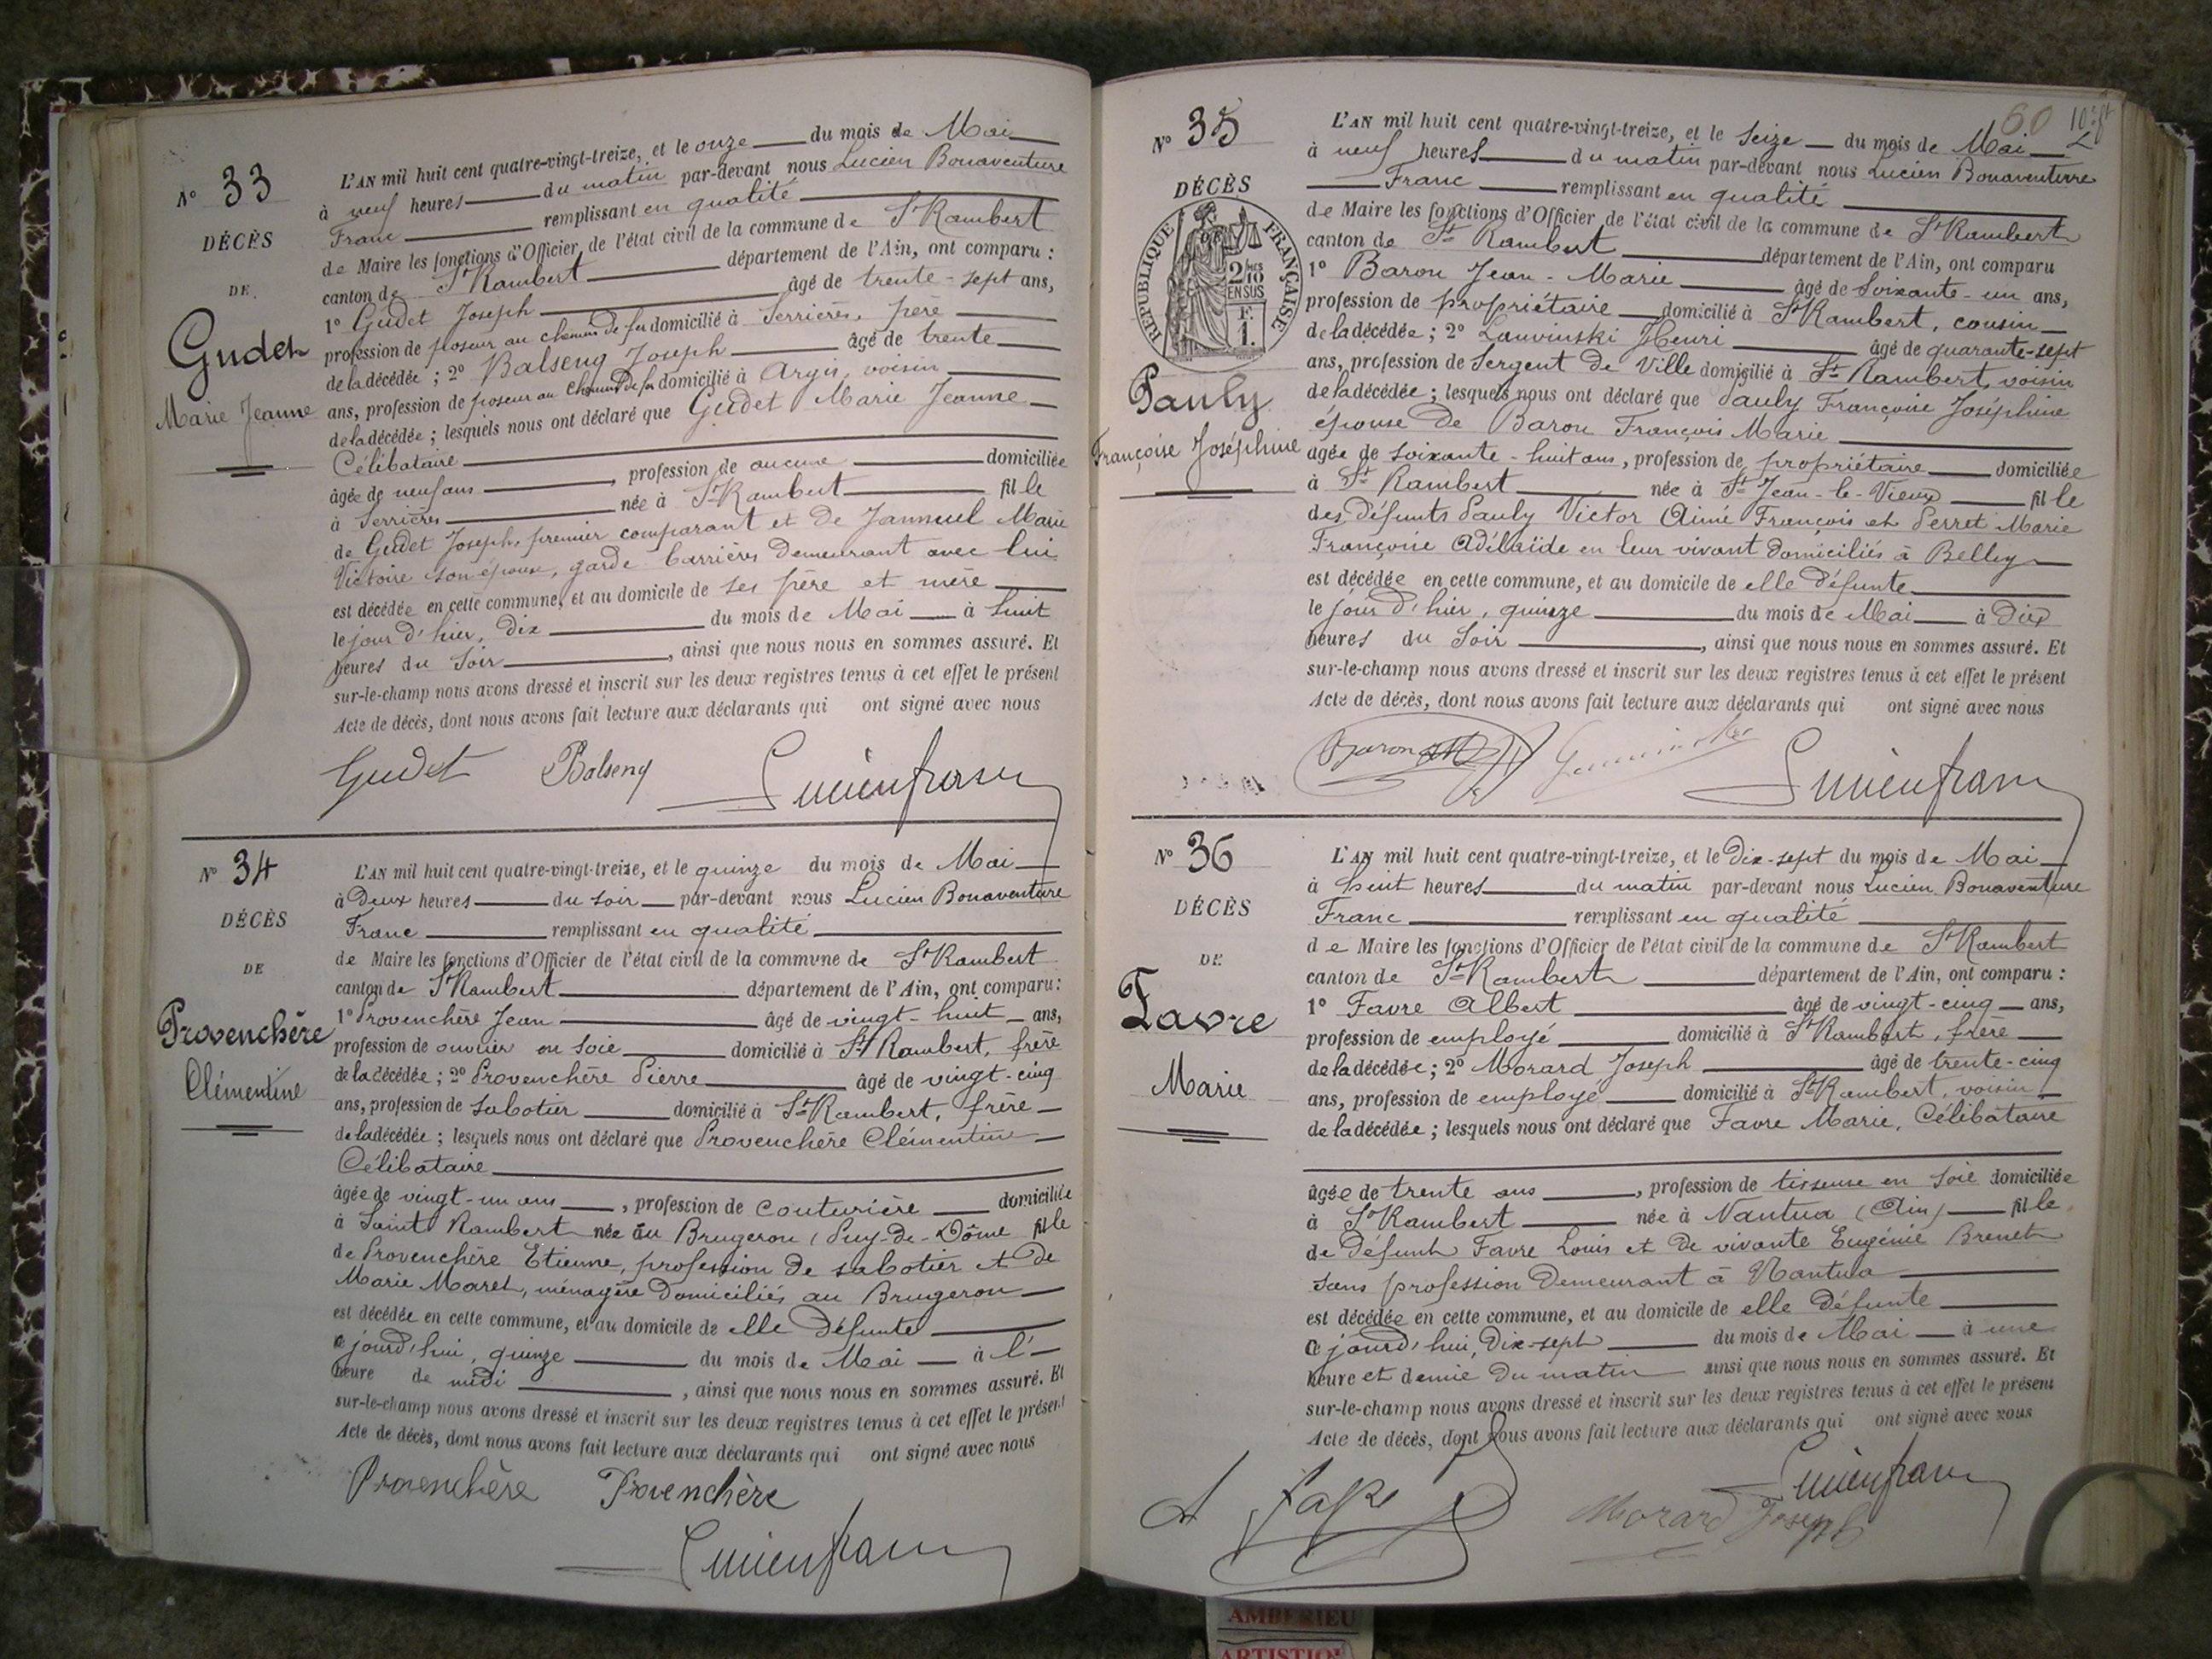 N° 33
DÉCÈS
DE
Gudet
Marie Jeanne
L'AN mil huit cent quatre-vingt-treize, et le onze du mois de Mai
à neuf heures du matin par-devant nous Lucien Bonaventure
Franc remplissant en qualité
de Maire les fonctions d'Officier de l'état civil de la commune de St Rambert
canton de St Rambert département de l'Ain, ont comparu :
1° Gudet Joseph âgé de trente-sept ans,
profession de poseur au chemin de fer domicilié à Serrières, père
de la décédée ; 2° Balseng Joseph âgé de trente
ans, profession de poseur au chemin de fer domicilié à Argis, voisin
de la décédée ; lesquels nous ont déclaré que Gudet Marie Jeanne
Célibataire
âgée de neuf ans, profession de aucune domiciliée
à Serrières née à St Rambert fille
de Gudet Joseph, premier comparant et de Janneul Marie
Victoire son épouse, garde barrières demeurant avec lui
est décédée en cette commune, et au domicile de ses père et mère
le jour d'hier, dix du mois de Mai à huit
heures du soir, ainsi que nous nous en sommes assuré. Et
sur-le-champ nous avons dressé et inscrit sur les deux registres tenus à cet effet le présent
Acte de décès, dont nous avons fait lecture aux déclarants qui ont signé avec nous
Gudet Balseng Lucien franc
N° 34
DÉCÈS
DE
Provenchère
Clémentine
L'AN mil huit cent quatre-vingt-treize, et le quinze du mois de Mai
à Deux heures du soir par-devant nous Lucien Bonaventure
Franc remplissant en qualité
de Maire les fonctions d'Officier de l'état civil de la commune de St Rambert
canton de St Rambert département de l'Ain, ont comparu :
1° Provenchère Jean âgé de vingt-huit ans,
profession de ouvrier en soie domicilié à St Rambert, frère
de la décédée ; 2° Provenchère Pierre âgé de vingt-cinq
ans, profession de sabotier domicilié à St Rambert, frère
de la décédée ; lesquels nous ont déclaré que Provenchère Clémentine
Célibataire
âgée de vingt-un ans, profession de couturière domiciliée
à Saint Rambert née au Brugeron (Puy-de-Dôme fille
de Provenchère Etienne, profession de sabotier et de
Marie Maret, ménagère domiciliés au Brugeron
est décédée en cette commune, et au domicile de elle défunte
ce jourd'hui, quinze du mois de Mai à l'
heure de midi, ainsi que nous nous en sommes assuré. Et
sur-le-champ nous avons dressé et inscrit sur les deux registres tenus à cet effet le présent
Acte de décès, dont nous avons fait lecture aux déclarants qui ont signé avec nous
Provenchère Provenchère
Lucien franc
60
N° 35
DÉCÈS
RÉPUBLIQUE FRANÇAISE
2/10 EN SUS
F. 1.
Pauly
Françoise Joséphine
L'AN mil huit cent quatre-vingt-treize, et le seize du mois de Mai
à neuf heures du matin par-devant nous Lucien Bonaventure
Franc remplissant en qualité
de Maire les fonctions d'Officier de l'état civil de la commune de St Rambert
canton de St Rambert département de l'Ain, ont comparu
1° Baron Jean-Marie âgé de soixante-un ans,
profession de propriétaire domicilié à St Rambert, cousin
de la décédée ; 2° Lauvinski Henri âgé de quarante-sept
ans, profession de Sergent de Ville domicilié à St Rambert, voisin
de la décédée ; lesquels nous ont déclaré que Pauly Françoise Joséphine
épouse de Baron François Marie
agée de soixante-huit ans, profession de propriétaire domiciliée
à St Rambert née à St Jean-le-Vieux fille
des défunts Pauly Victor Aimé François et Perret Marie
Françoise Adélaïde en leur vivant domiciliés à Belley
est décédée en cette commune, et au domicile de elle défunte
le jour d'hier, quinze du mois de Mai à Dix
heures du soir, ainsi que nous nous en sommes assuré. Et
sur-le-champ nous avons dressé et inscrit sur les deux registres tenus à cet effet le présent
Acte de décès, dont nous avons fait lecture aux déclarants qui ont signé avec nous
Baron Lucien franc
N° 36
DÉCÈS
DE
Favre
Marie
L'AN mil huit cent quatre-vingt-treize, et le Dix-sept du mois de Mai
à huit heures du matin par-devant nous Lucien Bonaventure
Franc remplissant en qualité
de Maire les fonctions d'Officier de l'état civil de la commune de St Rambert
canton de St Rambert département de l'Ain, ont comparu :
1° Favre Albert âgé de vingt-cinq ans,
profession de employé domicilié à St Rambert, frère
de la décédée ; 2° Morard Joseph âgé de trente-cinq
ans, profession de employé domicilié à St Rambert, voisin
de la décédée ; lesquels nous ont déclaré que Favre Marie, Célibataire
âgée de trente ans, profession de tisseuse en soie domiciliée
à St Rambert née à Nantua (Ain) fille
de défunt Favre Louis et de vivante Eugénie Brenet
sans profession demeurant à Nantua
est décédée en cette commune, et au domicile de elle défunte
ce jourd'hui, Dix-sept du mois de Mai à une
heure et demie du matin ainsi que nous nous en sommes assuré. Et
sur-le-champ nous avons dressé et inscrit sur les deux registres tenus à cet effet le présent
Acte de décès, dont nous avons fait lecture aux déclarants qui ont signé avec nous
Lucien franc
Morard Joseph
AMBERIEU
ARTISTIQU